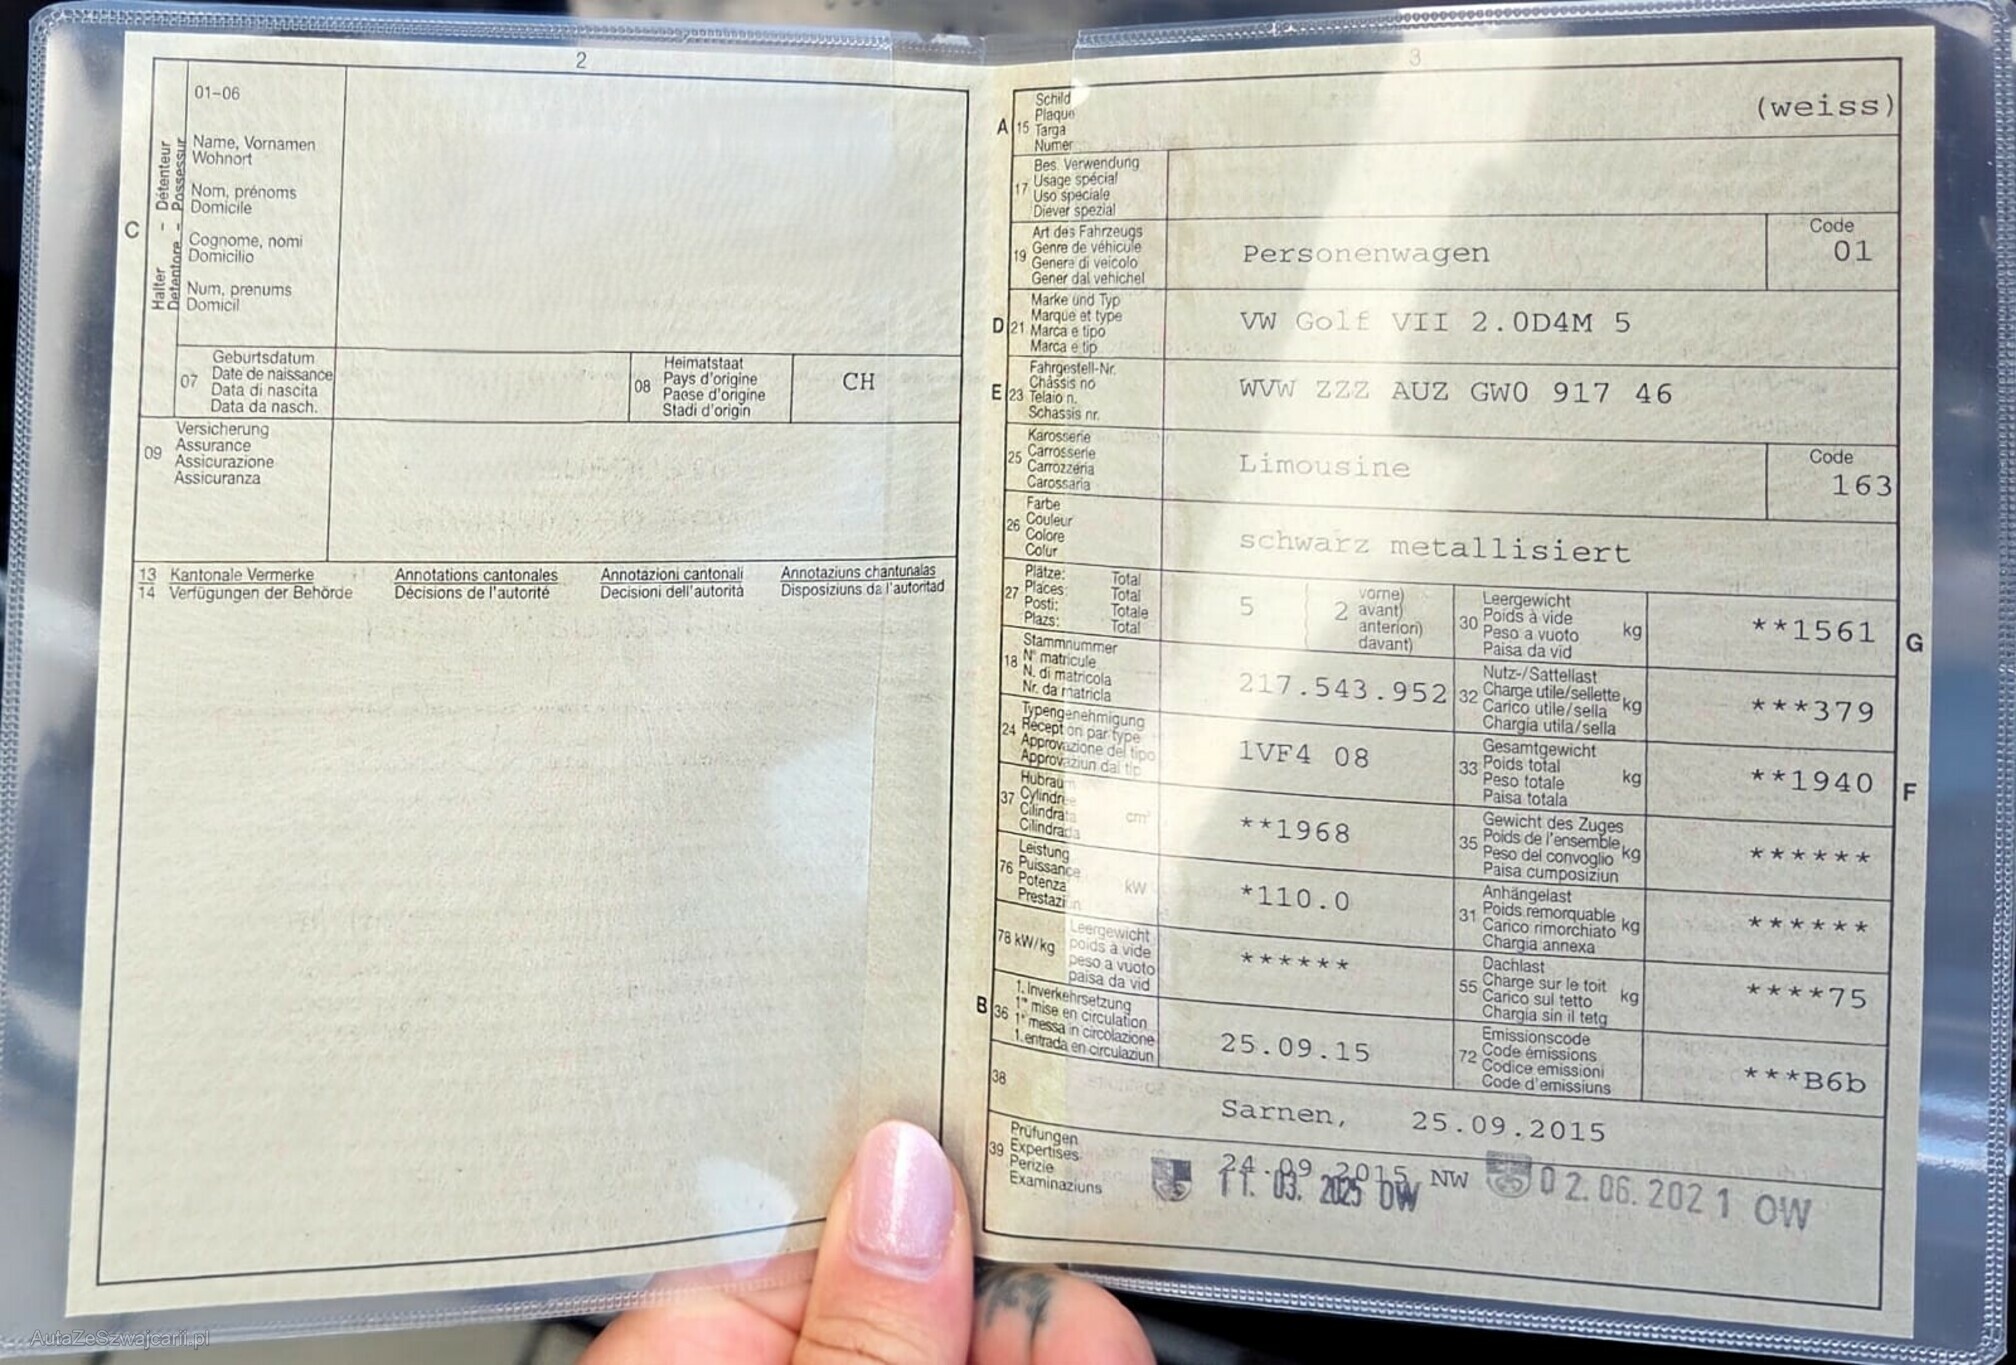 2
01-06
Halter - Détenteur
Detentore - Possessur
C
Name, Vornamen
Wohnort
Nom, prénoms
Domicile
Cognome, nomi
Domicilio
Num, prenums
Domicil
07
Geburtsdatum
Date de naissance
Data di nascita
Data da nasch.
08
Heimatstaat
Pays d'origine
Paese d'origine
Stadi d'origin
CH
09
Versicherung
Assurance
Assicurazione
Assicuranza
13 Kantonale Vermerke Annotations cantonales Annotazioni cantonali Annotaziuns chantunalas
14 Verfügungen der Behörde Décisions de l'autorité Decisioni dell'autorità Disposiziuns da l'autoritad
3
A 15
Schild
Plaque
Targa
Numer
(weiss)
17
Bes. Verwendung
Usage spécial
Uso speciale
Diever spezial
19
Art des Fahrzeugs
Genre de véhicule
Genere di veicolo
Gener dal vehichel
Personenwagen
Code
01
D 21
Marke und Typ
Marque et type
Marca e tipo
Marca e tip
VW Golf VII 2.0D4M 5
E 23
Fahrgestell-Nr.
Châssis no
Telaio n.
Schassis nr.
WVW ZZZ AUZ GW0 917 46
25
Karosserie
Carrosserie
Carrozzeria
Carossaria
Limousine
Code
163
26
Farbe
Couleur
Colore
Colur
schwarz metallisiert
27
Plätze: Total
Places: Total
Posti: Totale
Plazs: Total
5
2
vorne)
avant)
anteriori)
davant)
30
Leergewicht
Poids à vide
Peso a vuoto
Paisa da vid
kg
**1561
G
18
Stammnummer
N° matricule
N. di matricola
Nr. da matricla
217.543.952
32
Nutz-/Sattellast
Charge utile/sellette
Carico utile/sella
Chargia utila/sella
kg
***379
24
Typengenehmigung
Réception par type
Approvazione del tipo
Approvaziun dal tip
1VF4 08
33
Gesamtgewicht
Poids total
Peso totale
Paisa totala
kg
**1940
F
37
Hubraum
Cylindrée
Cilindrata
Cilindrada
cm³
**1968
35
Gewicht des Zuges
Poids de l'ensemble
Peso del convoglio
Paisa cumposiziun
kg
******
76
Leistung
Puissance
Potenza
Prestaziun
kW
*110.0
31
Anhängelast
Poids remorquable
Carico rimorchiato
Chargia annexa
kg
******
78 kW/kg
Leergewicht
poids à vide
peso a vuoto
paisa da vid
******
55
Dachlast
Charge sur le toit
Carico sul tetto
Chargia sin il tetg
kg
****75
B 36
1. Inverkehrsetzung
1re mise en circulation
1a messa in circolazione
1. entrada en circulaziun
25.09.15
72
Emissionscode
Code émissions
Codice emissioni
Code d'emissiuns
***B6b
38
Sarnen, 25.09.2015
39
Prüfungen
Expertises
Perizie
Examinaziuns
24.09.2015 NW
11. 03. 2025 OW
02. 06. 2021 OW
AutaZeSzwajcarii.pl